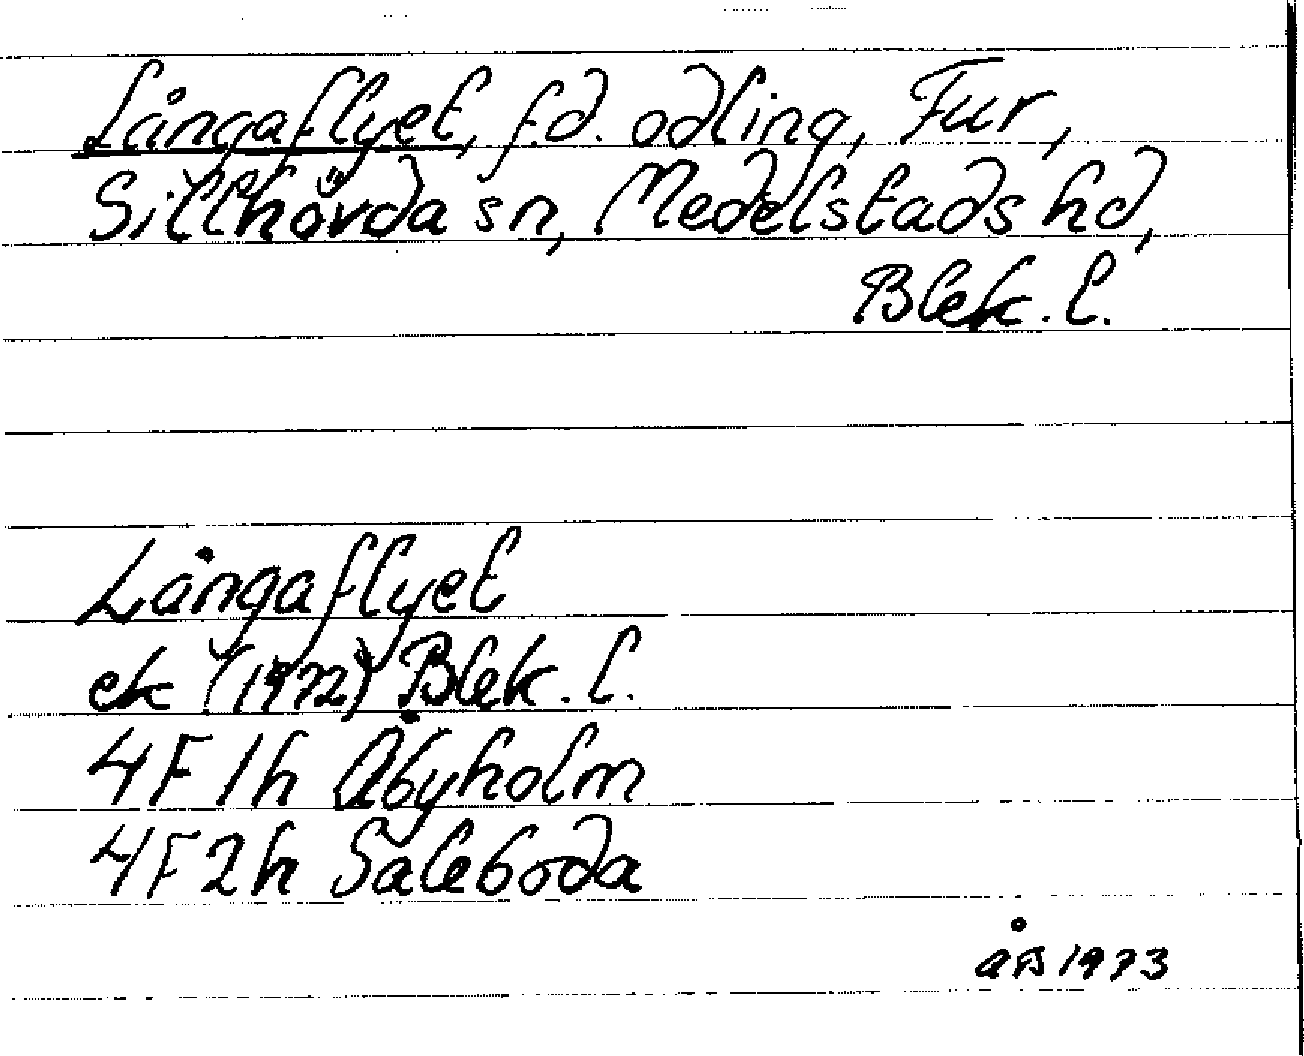 Långaflyet, f.d. odling, Fur,
Sillhövda sn, Medelstads hd,
Blek. l.
Långaflyet
ek (1972) Blek. l.
4F1h Åbyholm
4F2h Saleboda
ÅB 1973